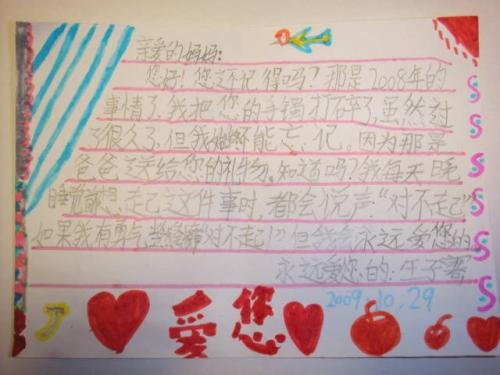 亲爱的妈妈：
您好！您还记得吗？那是2008年的
事情了，我把您的手镯打碎了，虽然过
了很久了，但我始终不能忘记。因为那是
爸爸送给您的礼物。知道吗？我每天睡
睡前想起这件事时，都会说声“对不起”
如果我有勇气 对不起！但我会永远爱您的
永远爱您的：王子
2009.10.29
爱您